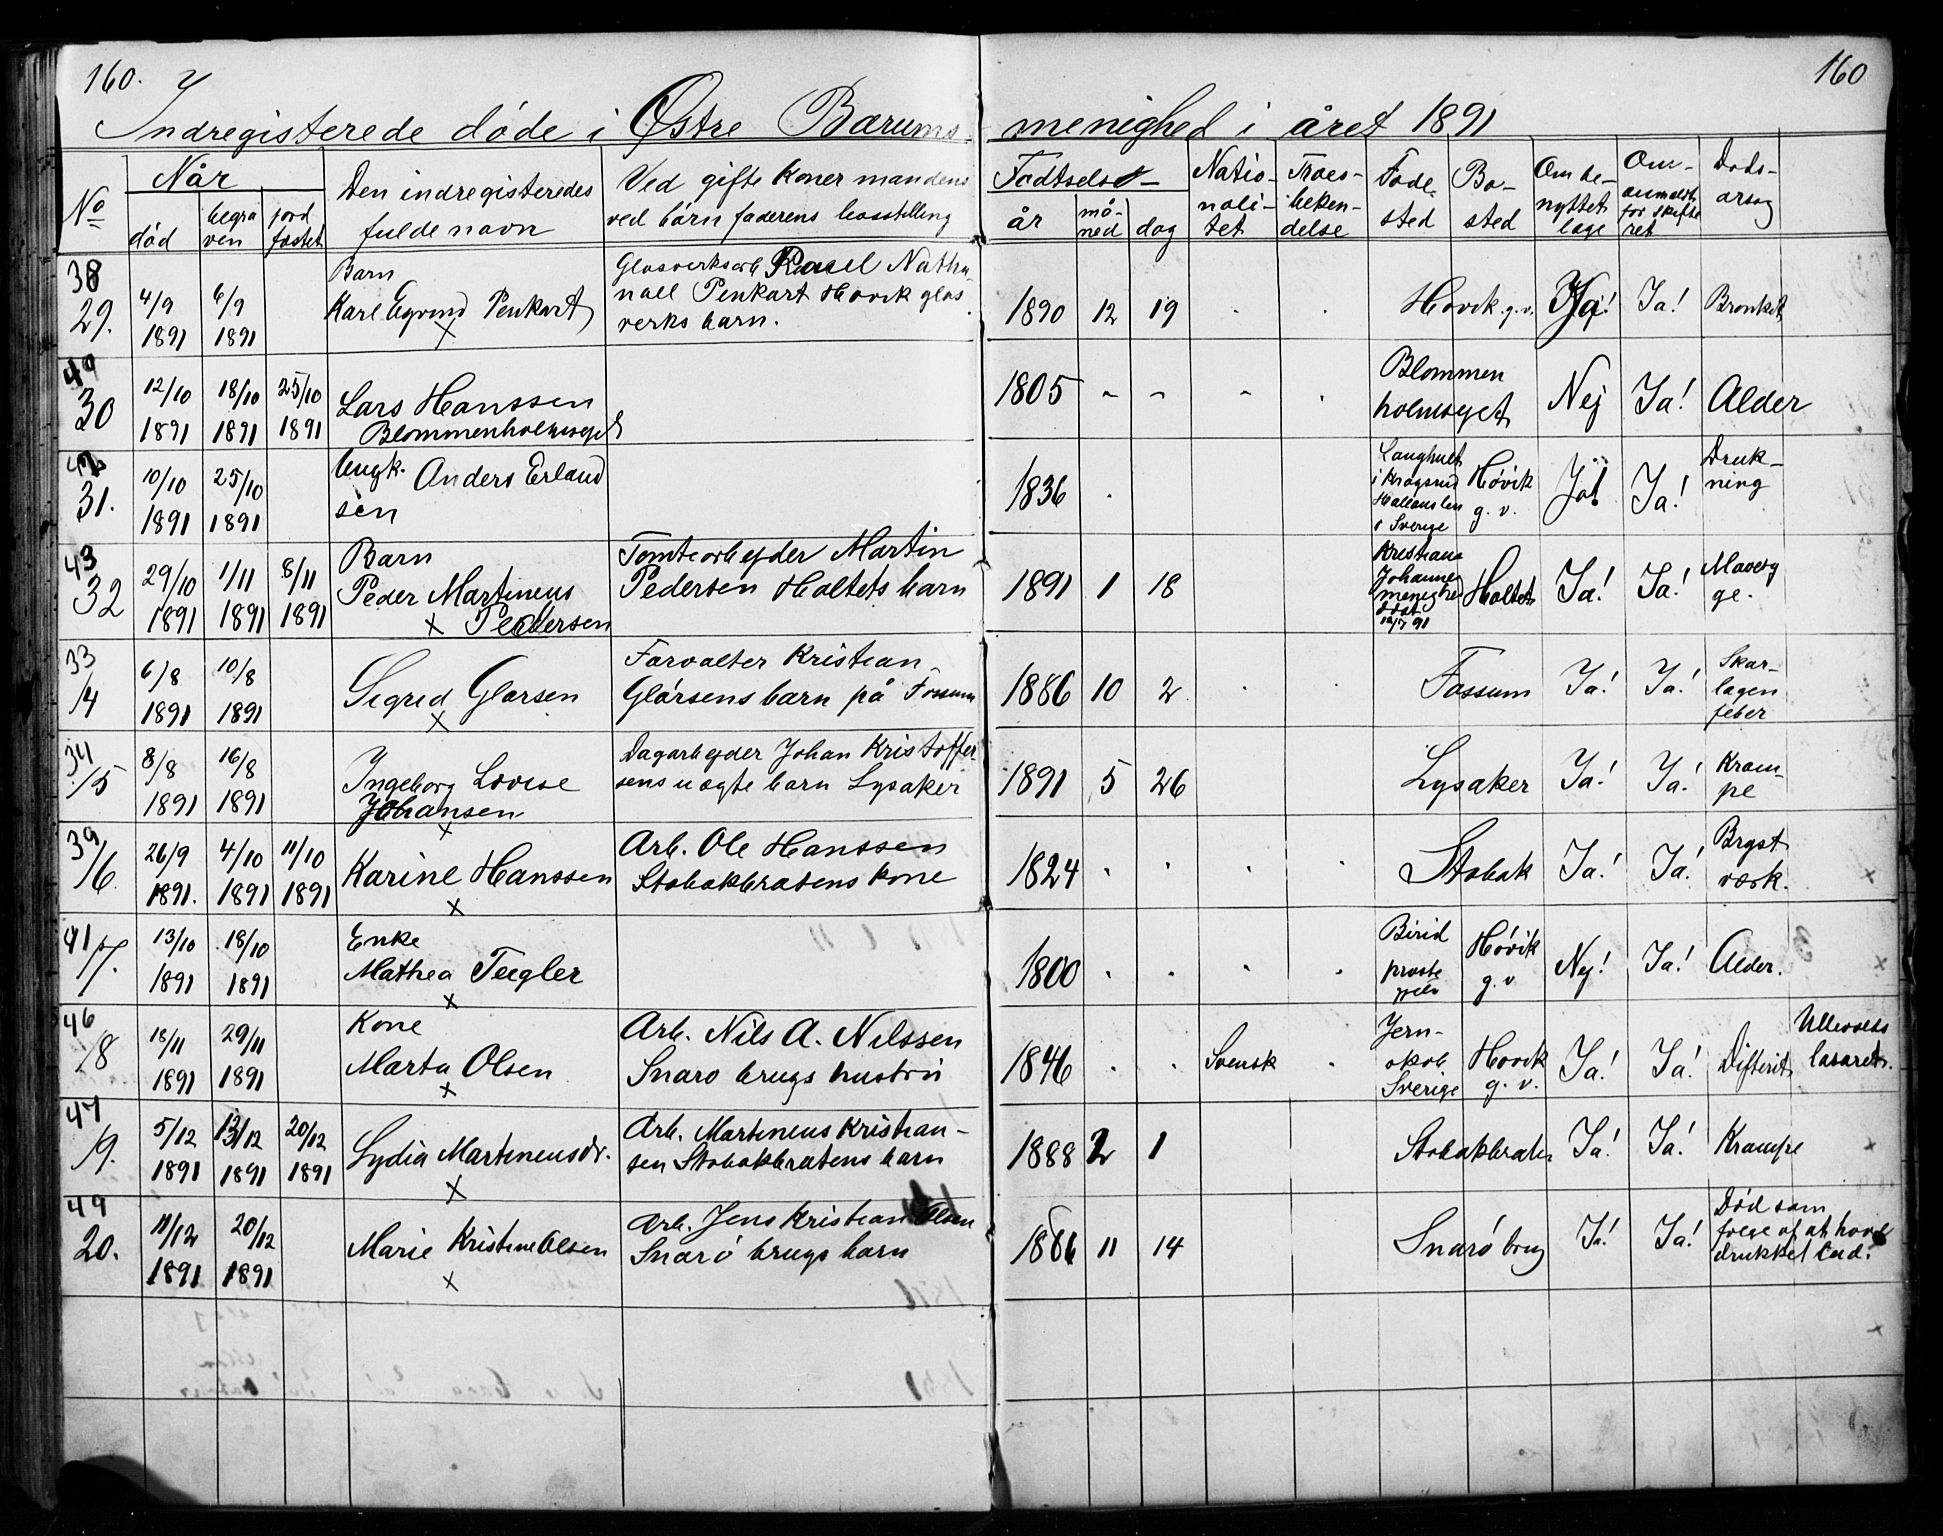 160.
160
Indregisterede døde i Østre Bærums menighed i året 1891
No
Når
død
begra
ven
jord
fæstet
Den indregisteredes
fulde navn
Ved gifte koner mandens
ved børn faderens livsstilling
Fødtsels
år
må-
ned
dag
Natio-
nali-
tet
Troes-
beken-
delse
Føde
sted
Bo-
sted
Om be-
nyttet
læge
Om-
anmeldt
for skifte
ret
Døds-
årsag
38
29.
4/9
1891
6/9
1891
Barn
Karl Penkart
X
Glasverksarb Natha
nall Penkart Høvik glas
verks barn.
1890 12 19
Høvik g. v.
Ja!
Ja!
Bronkit
30
12/10
1891
18/10
1891
25/10
1891
Lars Hanssen
Blommenholm
1805
Blommen
Nej
Ja!
Alder
31.
10/10
1891
25/10
1891
Ungk. Anders Erland
sen
1836
i
i Sverige
Høvik
g. v.
Ja!
Druk-
ning
43
32
29/10
1891
1/11
1891
8/11
1891
Barn
Peder Martineus
X Pedersen
Tomtearbejder Martin
Pedersen Holtets barn
1891 1 18
Kristiania
Johannes
menighed
91
Holtet
Ja!
Ja!
33
14
6/8
1891
10/8
1891
Sigrid Glørsen
X
Forvalter Kristian
Glørsens barn på Fossum
1886 10 2
Fossum
Ja!
Ja!
Skar-
lagen
feber
34
15
8/8
1891
16/8
1891
Ingeborg Lovise
Johansen
X
Dagarbejder Johan Kristoffer
sens uægte barn Lysaker
1891 5 26
Lysaker
Ja!
Ja!
Kram-
pe
39
16
26/9
1891.
4/10
1891
11/10
1891
Karine Hanssen
X
Arb. Ole Hanssen
Stabakbråtens kone
1824
Stabak
Ja!
Ja!
Bryst
værk.
41
17.
13/10
1891
18/10
1891
Enke
Mathea Tegler
X
1800
Birid
præste
Høvik
g. v
Nej!
Ja!
Alder.
46
18
18/11
1891
29/11
1891
Kone
Marta Olsen
X
Arb. Nils A. Nilssen
Snarø brugs hustru
1846
Svensk
Jern-
skob
Sverige
Høvik
g. v.
Ja!
Ja!
Difterit
Ullevolds
lasaret.
47
19.
5/12
1891
13/12
1891
20/12
1891
Lydia Martineusdr.
X
Arb. Martineus Kristian-
sen Stabakbråtens barn
1888 2 1
Stabakbråten
Ja!
Ja!
Krampe
49
20.
11/12
1891
20/12
1891
Marie Kristine Olsen
X
Arb. Jens Kristian Olsen
Snarø brugs barn
1886 11 14
Snarø brug
Ja!
Ja!
Død som
følge af at have
drukket Lud.